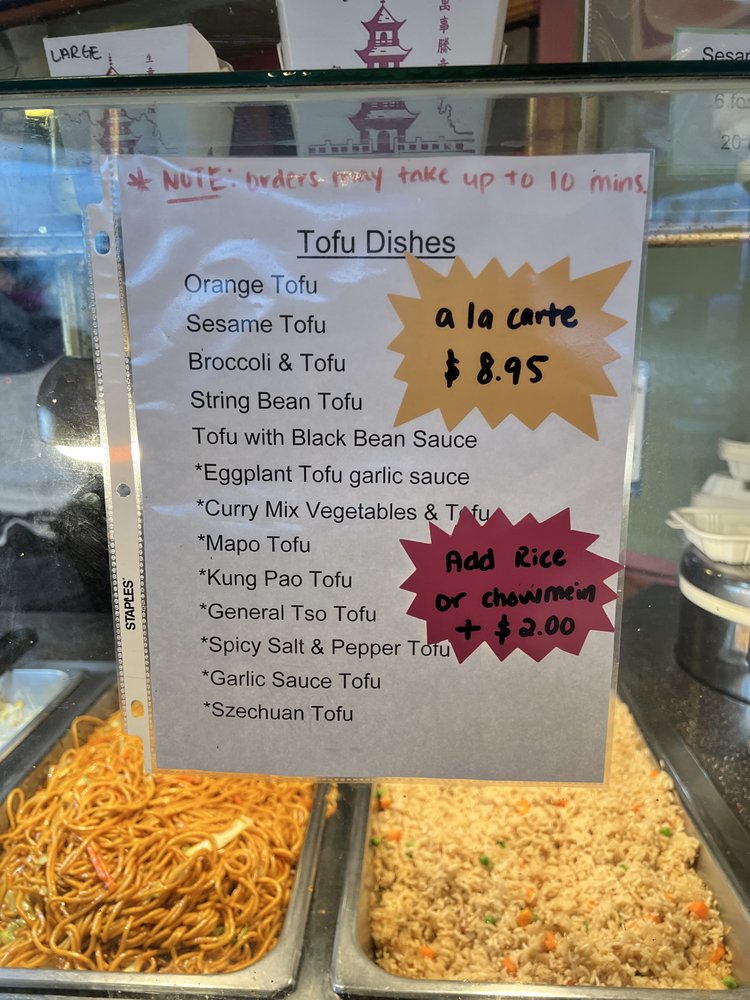 LARGE
萬事勝意
Sesa
6 fo
20
* NOTE: orders may take up to 10 mins.
Tofu Dishes
Orange Tofu
Sesame Tofu
Broccoli & Tofu
String Bean Tofu
Tofu with Black Bean Sauce
*Eggplant Tofu garlic sauce
*Curry Mix Vegetables & Tofu
*Mapo Tofu
*Kung Pao Tofu
*General Tso Tofu
*Spicy Salt & Pepper Tofu
*Garlic Sauce Tofu
*Szechuan Tofu
a la carte
$ 8.95
Add Rice
or chowmein
+ $2.00
STAPLES